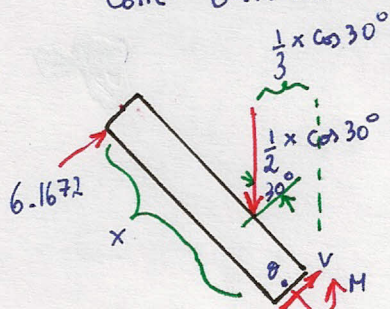 1/3 x cos 30°
1/2 x cos 30°
30°
6.1672
x
V
M